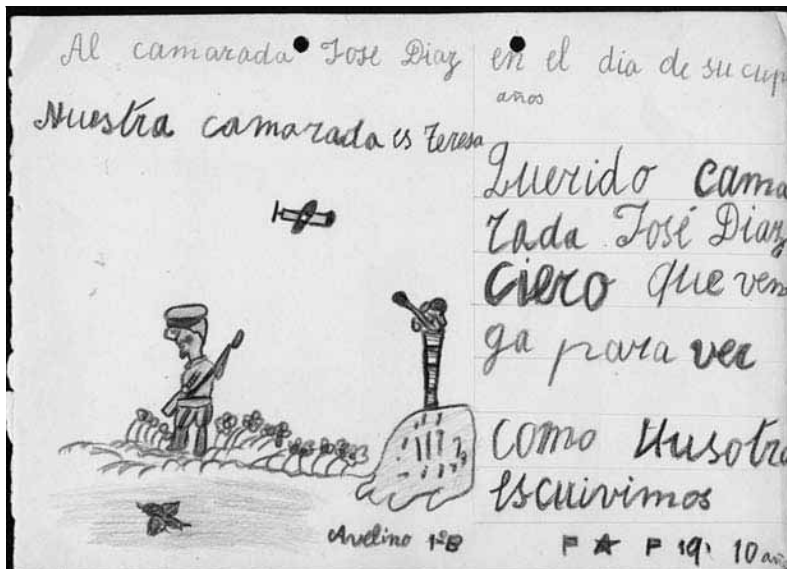 Al camarada José Diaz en el dia de su cup
años
Nuestra camarada es Teresa
Querido cama
rada José Diaz
ciero que ven
ga para ver
como Nusotro
escuivimos
Avelino 1º B
F ★ F 19, 10 años